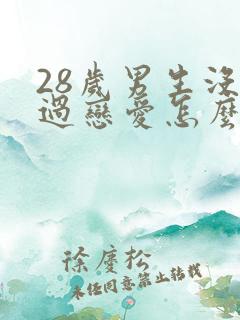 28歲男生沒
過戀愛怎麼
徐慶松
未经同意禁止转载